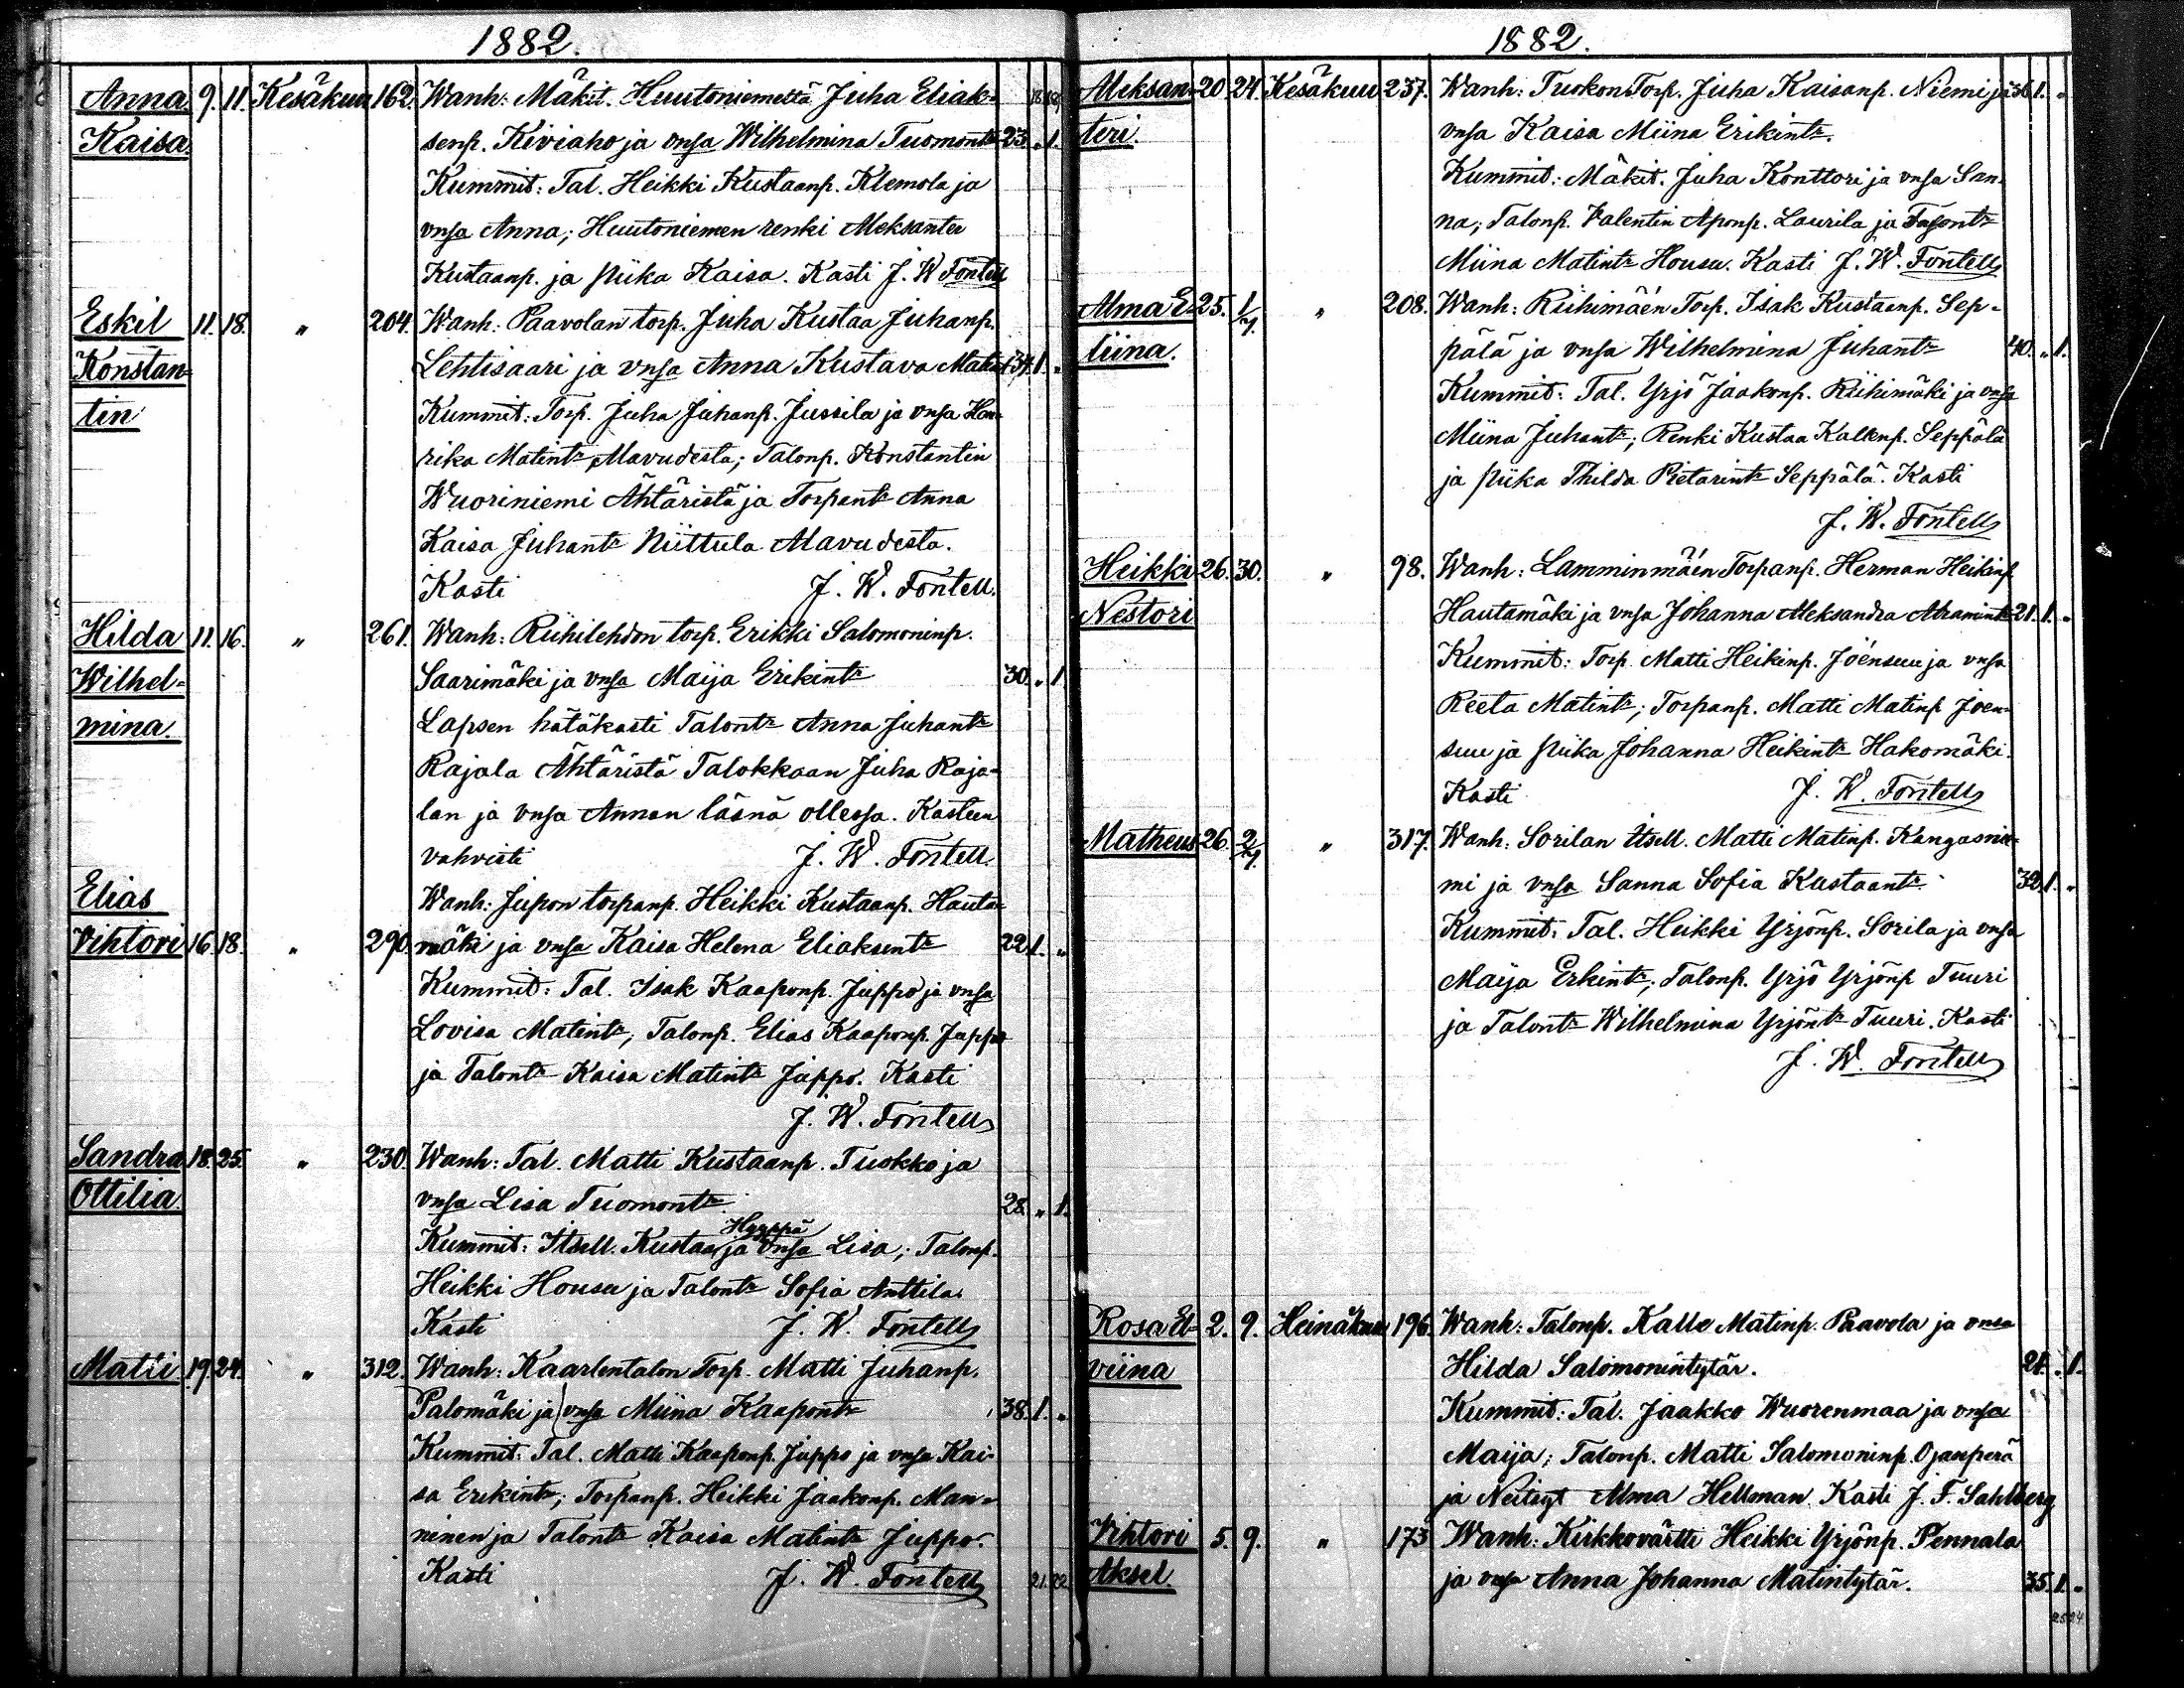 1882.
Anna 9. 11. Kesäkuu 162. Wanh: Mäkit. Huutoniemeltä Juha Eliak-
Kaisa. senp. Kiviaho ja vmsa Wilhelmina Tuomontr 23. „ 1.
Kummit: Tal. Heikki Kustaanp. Klemola ja
vmsa Anna; Huutoniemen renki Aleksanter
Kustaanp. ja piika Kaisa. Kasti J. W. Fontell
Eskil 11. 18. „ 204. Wanh: Paavolan torp. Juha Kustaa Juhanp.
Konstan- Lehtisaari ja vmsa Anna Kustava Matintr 34. 1. „
tin Kummit: Torp. Juha Juhanp. Jussila ja vmsa Hen-
rika Matintr Alavudesta; Talonp. Konstantin
Wuoriniemi Ähtäristä ja Torpantr Anna
Kaisa Juhantr Niittula Alavudesta.
Kasti J. W. Fontell.
Hilda 11. 16. „ 261. Wanh: Riihilehdon torp. Erikki Salomoninp.
Wilhel- Saarimäki ja vmsa Maija Erikintr 30. „ 1
mina. Lapsen hätäkasti Talontr Anna Juhantr
Rajala Ähtäristä Talokkaan Juha Raja-
lan ja vmsa Annan läsnä ollessa. Kasteen
vahvisti J. W. Fontell.
Elias Wanh: Jupon torpanp. Heikki Kustaanp. Hauta-
Vihtori 16. 18. „ 290. mäki ja vmsa Kaisa Helena Eliaksentr 22. 1. „
Kummit: Tal. Isak Kaaponp. Juppo ja vmsa
Lovisa Matintr, Talonp. Elias Kaaponp. Juppo
ja Talontr Kaisa Matintr Juppo. Kasti
J. W. Fontell
Sandra 18. 25. „ 230. Wanh: Tal. Matti Kustaanp. Tuokko ja
Ottilia. vmsa Lisa Tuomontr 28. „ 1.
Hyyppä
Kummit: Itsell. Kustaa ja vmsa Lisa; Talonp.
Heikki Housu ja Talontr Sofia Anttila.
Kasti J. W. Fontell
Matti 19. 24. „ 312. Wanh: Kaarlentalon Torp. Matti Juhanp.
Palomäki ja vmsa Miina Kaapontr 38. 1. „
Kummit: Tal. Matti Kaaponp. Juppo ja vmsa Kai-
sa Erikintr; Torpanp. Heikki Jaakonp. Man-
ninen ja Talontr Kaisa Matintr Juppo.
Kasti J. W. Fontell 21. 22
1882.
Aleksan- 20 24. Kesäkuu 237. Wanh: Tuokon Torp. Juha Kaisanp. Niemi ja 36. 1. „
teri. vmsa Kaisa Miina Erikintr.
Kummit: Mäkit. Juha Konttori ja vmsa San-
na; Talonp. Valentin Aponp. Laurila ja Talontr
Miina Matintr Housu. Kasti J. W. Fontell
Alma E- 25. 1/7. „ 208. Wanh: Riihimäen Torp. Isak Kustaanp. Sep-
liina. pälä ja vmsa Wilhelmina Juhantr 40. „ 1.
Kummit: Tal. Yrjö Jaakonp. Riihimäki ja vmsa
Miina Juhantr; Renki Kustaa Kallenp. Seppälä
ja piika Thilda Pietarintr Seppälä. Kasti
J. W. Fontell
Heikki 26. 30. „ 98. Wanh: Lamminmäen Torpanp. Herman Heikinp.
Nestori Hautamäki ja vmsa Johanna Aleksandra Abramintr 21. 1. „
Kummit: Torp. Matti Heikinp. Joensuu ja vmsa
Reeta Matintr; Torpanp. Matti Matinp Joen-
suu ja piika Johanna Heikintr Hakomäki.
Kasti J. W. Fontell
Matheus 26. 2/7. „ 317. Wanh: Sorilan Itsell. Matti Matinp. Kangasnie-
mi ja vmsa Sanna Sofia Kustaantr. 32. 1. „
Kummit: Tal. Heikki Yrjönp. Sorila ja vmsa
Maija Erkintr; Talonp. Yrjö Yrjönp Tuuri
ja Talontr Wilhelmina Yrjöntr Tuuri. Kasti
J. W. Fontell
Rosa El- 2. 9. Heinäkuu 196. Wanh: Talonp. Kalle Matinp. Paavola ja vmsa
viina Hilda Salomonintytär. 21. „ 1.
Kummit: Tal. Jaakko Wuorenmaa ja vmsa
Maija; Talonp. Matti Salomoninp. Ojanperä
ja Neitsyt Alma Hellman. Kasti J. F. Sahlberg
Vihtori 5. 9. „ 173 Wanh: Kirkkovärtti Heikki Yrjönp. Pennala
Aksel. ja vmsa Anna Johanna Matintytär. 35. 1. „